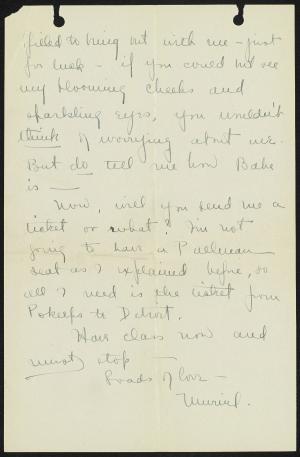 field to bring out with me - just
for luck - if you could but see
my blooming cheeks and
sparkling eyes, you wouldn't
think of worrying about me.
But do tell me how Babe
is —
Now, will you send me a
ticket or what? I'm not
going to have a Pullman
seat as I explained before, so
all I need is the ticket from
Pokeeps to Detroit.
Have class now and
must stop —
Loads of love -
Muriel.